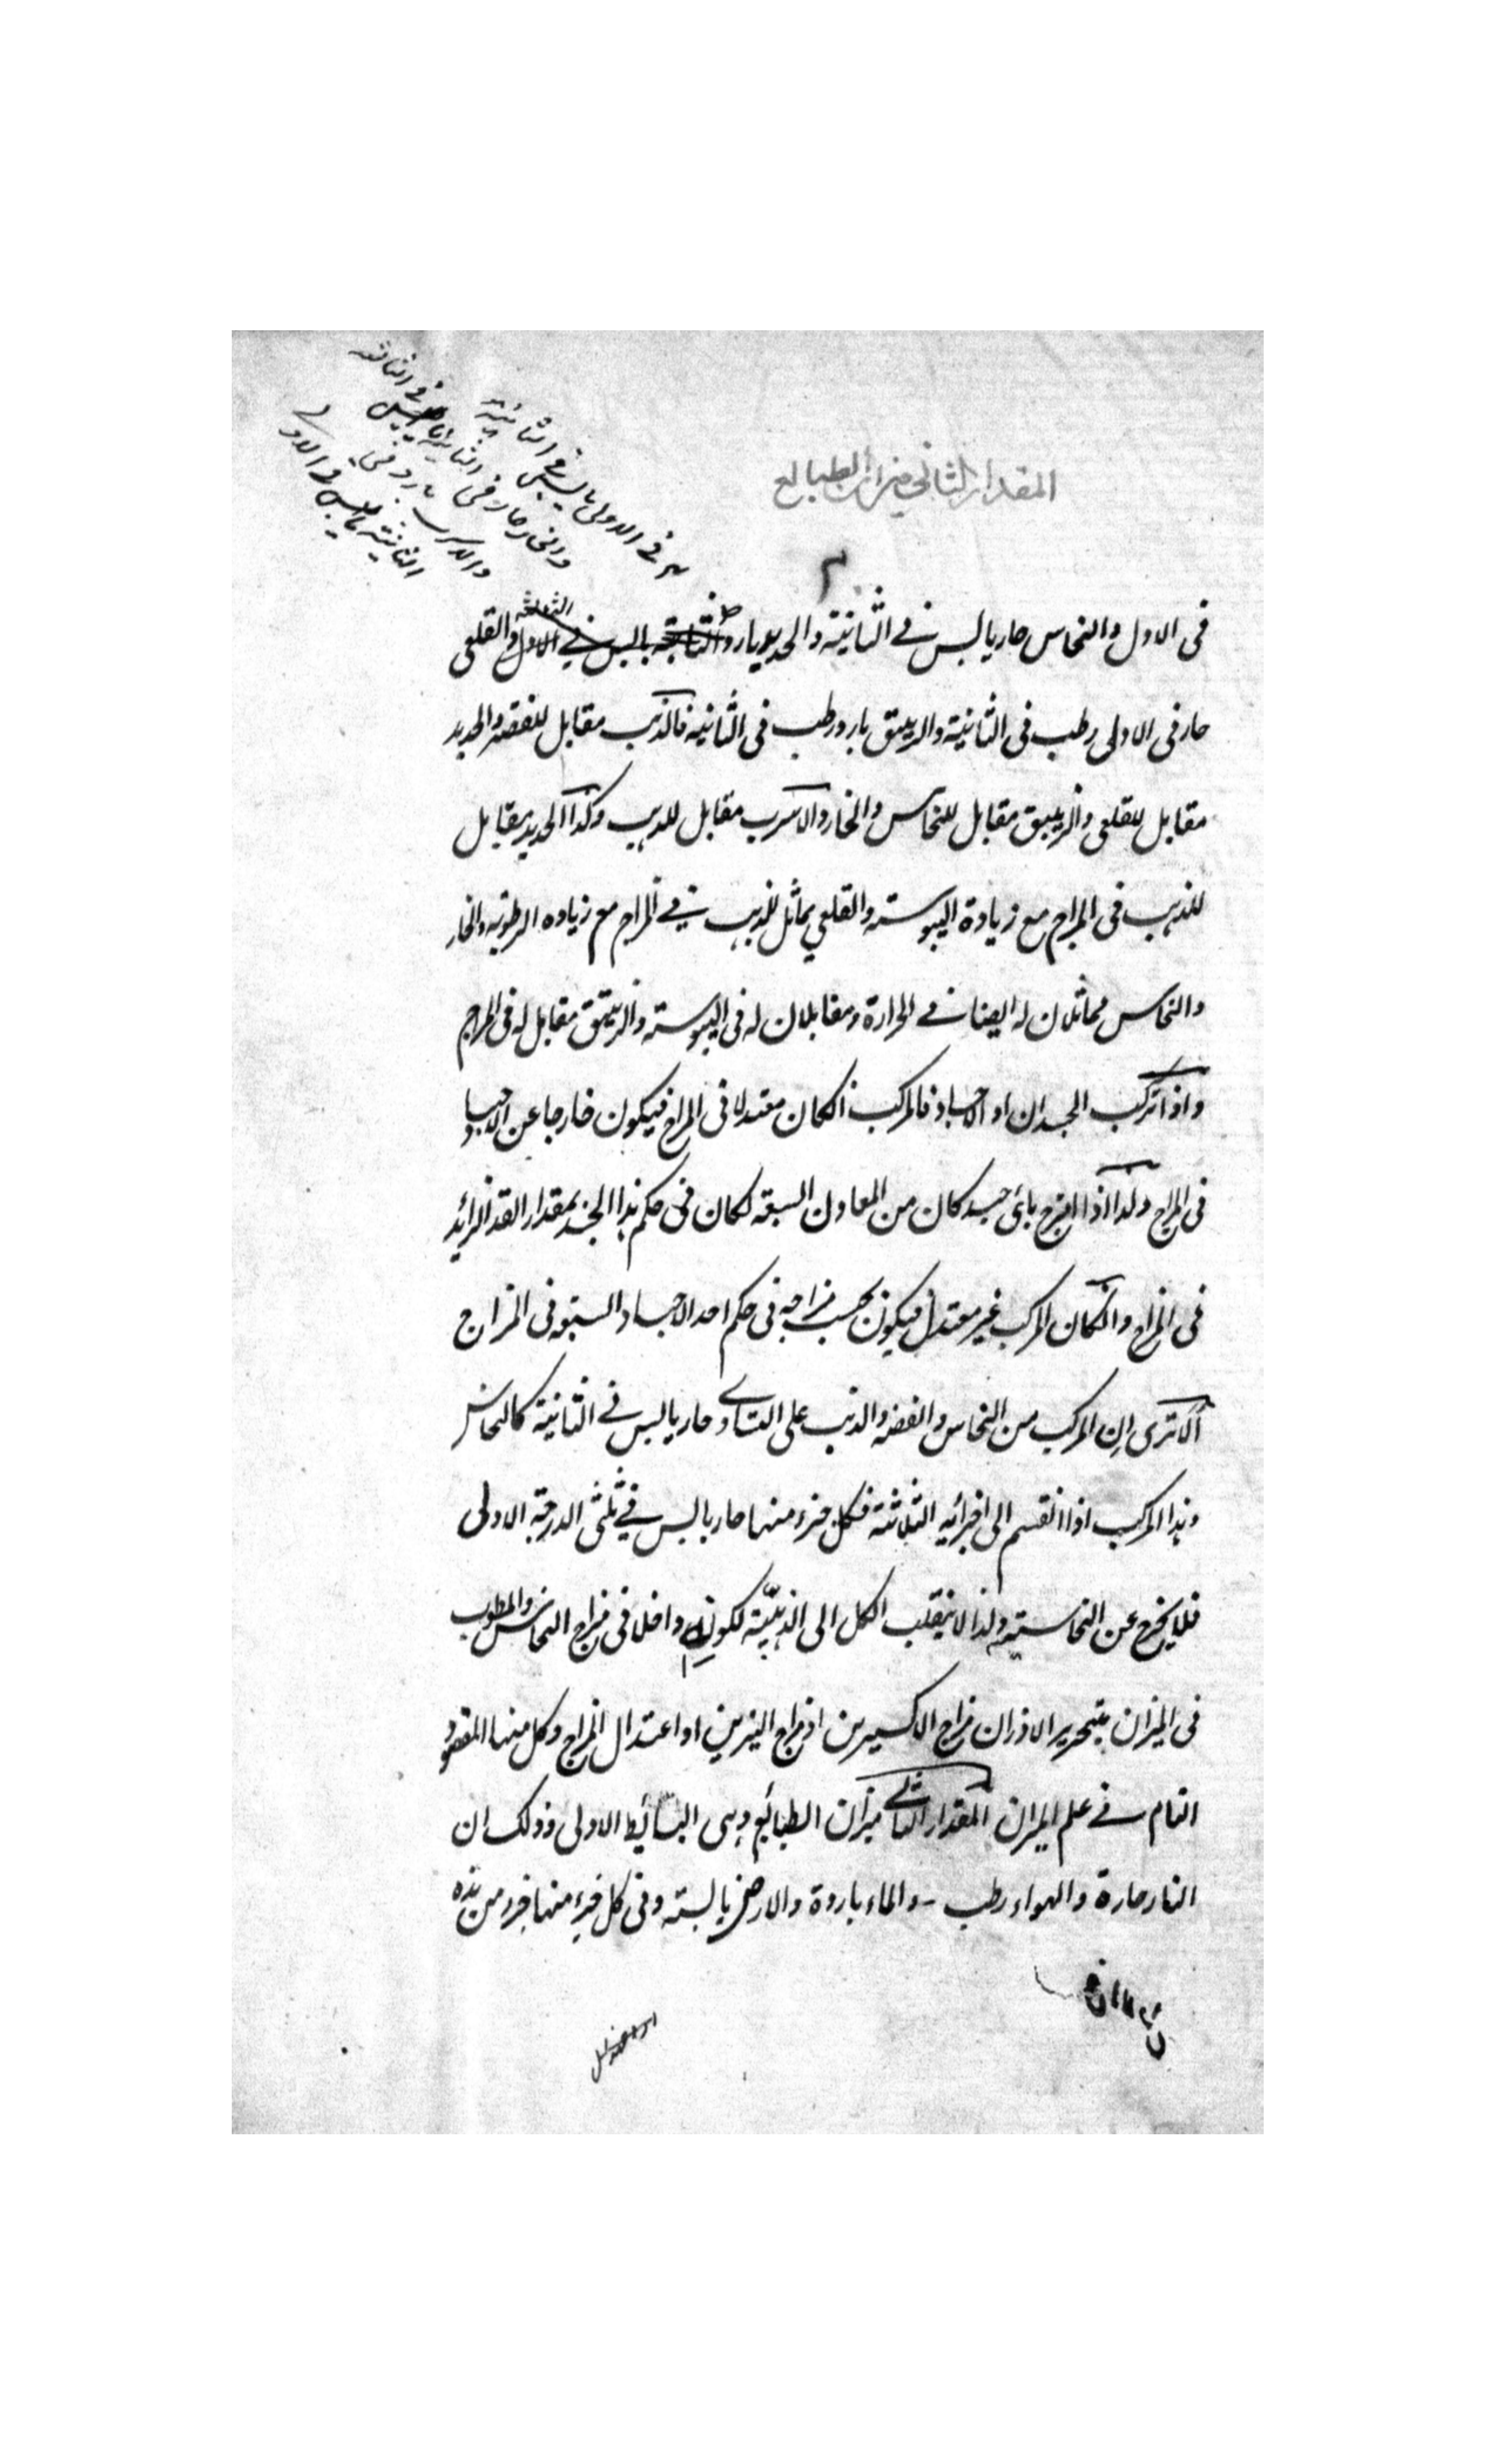 المقدار الثاني ميزان الطبايع
في الاولى يابس في الثانية
والخار حار في الثانية يابس في الثالثة
والاسرب بارد في
الثانية يابس في الاولى
في الاول والنحاس حار يابس في الثانية والحديد بارد يابس في الاولى والقلعي
الثالثة
حار في الاولى رطب في الثانية والزيبق بارد رطب في الثانيه فالذهب مقابل للفضه والحديد
مقابل للقلعي والزيبق مقابل للنحاس والخار والاسرب مقابل للذهب وكذا الحديد مقابل
للذهب في المزاج مع زيادة اليبوسته والقلعي يماثل للذهب في المزاج مع زياده الرطوبه والخار
والنحاس مماثلان له ايضا في الحرارة ومقابلان له في اليبوسته والزيبق مقابل له في المزاج
واذا تركب الجسدان او الاجساد فالمركب انكان معتدلا في المزاج فيكون خارجا عن الاجساد
في المزاج ولذا اذا امتزج باي جسد كان من المعادن السبعه لكان في حكم هذا الجسد بمقدار القدر الزائد
في المزاج وانكان المركب غير معتدل فيكون بحسب مزاجه في حكم احد الاجساد السبعه في المزاج
الا ترى ان المركب من النحاس والفضه والذهب على التساوي حار يابس في الثانية كالنحاس
وهذا المركب اذا انقسم الى اجزائه الثلاثة فكل جزء منها حار يابس في ثلثي الدرجة الاولى
فلا يخرج عن النحاسيته ولذا لا ينقلب الكل الى الذهبيّة لكونه داخلا في مزاج النحاس والمطلوب
في الميزان بتحرير الاوزان مزاج الاكسيرين او مزاج النيرين او اعتدال المزاج وكل منها المقصود
التام في علم الميزان المقدار الثاني ميزان الطبائع وهي البسائط الاولى وذلك ان
النار حارة والهواء رطب والماء باردة والارض يابسته وفي كل جزء منها جزء من هذه